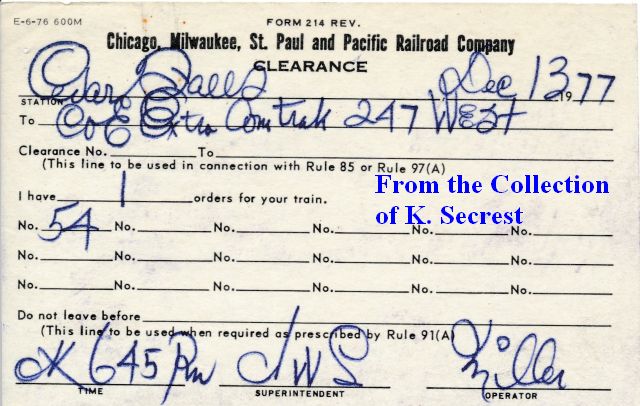 E-6-76 600M FORM 214 REV.
Chicago, Milwaukee, St. Paul and Pacific Railroad Company
CLEARANCE
Cedar Falls Dec 13 1977
STATION
To C&E Extra Comtrak 247 West
Clearance No. To
(This line to be used in connection with Rule 85 or Rule 97(A)
I have 1 orders for your train.
From the Collection
of K. Secrest
No. 54 No. No. No. No. No.
No. No. No. No. No. No.
No. No. No. No. No. No.
Do not leave before
(This line to be used when required as prescribed by Rule 91(A)
OK 645 PM JWS Miller
TIME SUPERINTENDENT OPERATOR